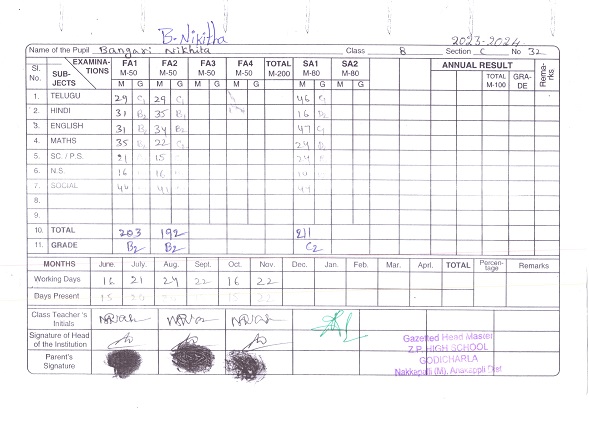 B. Nikitha
2023-2024
Name of the Pupil Bangari Nikhita Class 8 Section C No 32
Sl. No. EXAMINATIONS SUBJECTS FA1 M-50 FA2 M-50 FA3 M-50 FA4 M-50 TOTAL M-200 SA1 M-80 SA2 M-80 ANNUAL RESULT TOTAL M-100 GRADE Remarks
M G M G M G M G M G M G
1. TELUGU 29 C1 29 C1 46 C1
2. HINDI 31 B2 35 B1 16 D2
3. ENGLISH 31 B2 34 B2 47 C1
4. MATHS 35 B2 22 C2 24 D2
5. SC. / P.S. 21 15
6. N.S. 16 16
7. SOCIAL
8.
9.
10. TOTAL 203 192 211
11. GRADE B2 B2 C2
MONTHS June. July. Aug. Sept. Oct. Nov. Dec. Jan. Feb. Mar. April. TOTAL Percentage Remarks
Working Days 16 21 24 22 16 22
Days Present 15 20 22 15 22
Class Teacher's Initials
Signature of Head of the Institution
Parent's Signature
Gazetted Head Master
Z.P. HIGH SCHOOL
GODICHARLA
Nakkapalli (M), Anakappli Dist